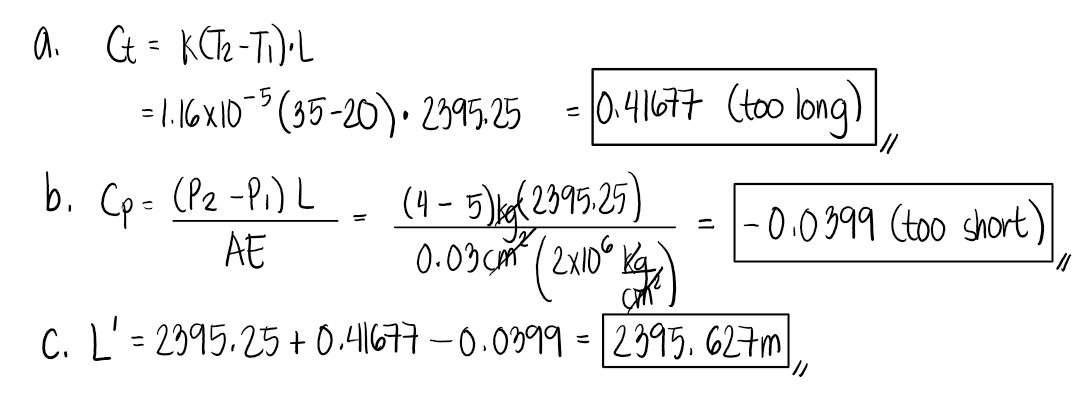 a. Ct = K(T₂-T₁)·L
= 1.16x10⁻⁵(35-20)· 2395.25 = 0.41677 (too long)
b. Cp = (P₂ -P₁) L / AE = (4 - 5)kg(2395.25) / 0.03cm² (2x10⁶ kg/cm²) = -0.0399 (too short)
c. L' = 2395.25 + 0.41677 - 0.0399 = 2395.627m